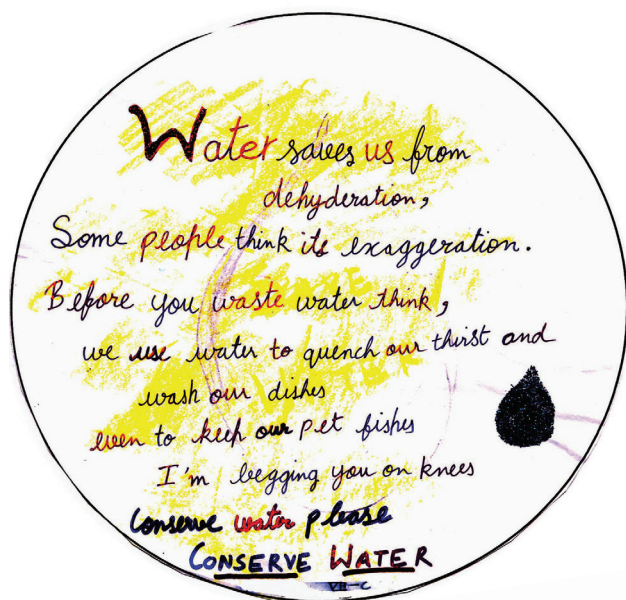 Water saves us from
dehyderation,
Some people think its exaggeration.
Before you waste water think,
we use water to quench our thirst and
wash our dishes
even to keep our pet fishes
I'm begging you on knees
Conserve water please
CONSERVE WATER
VII-C